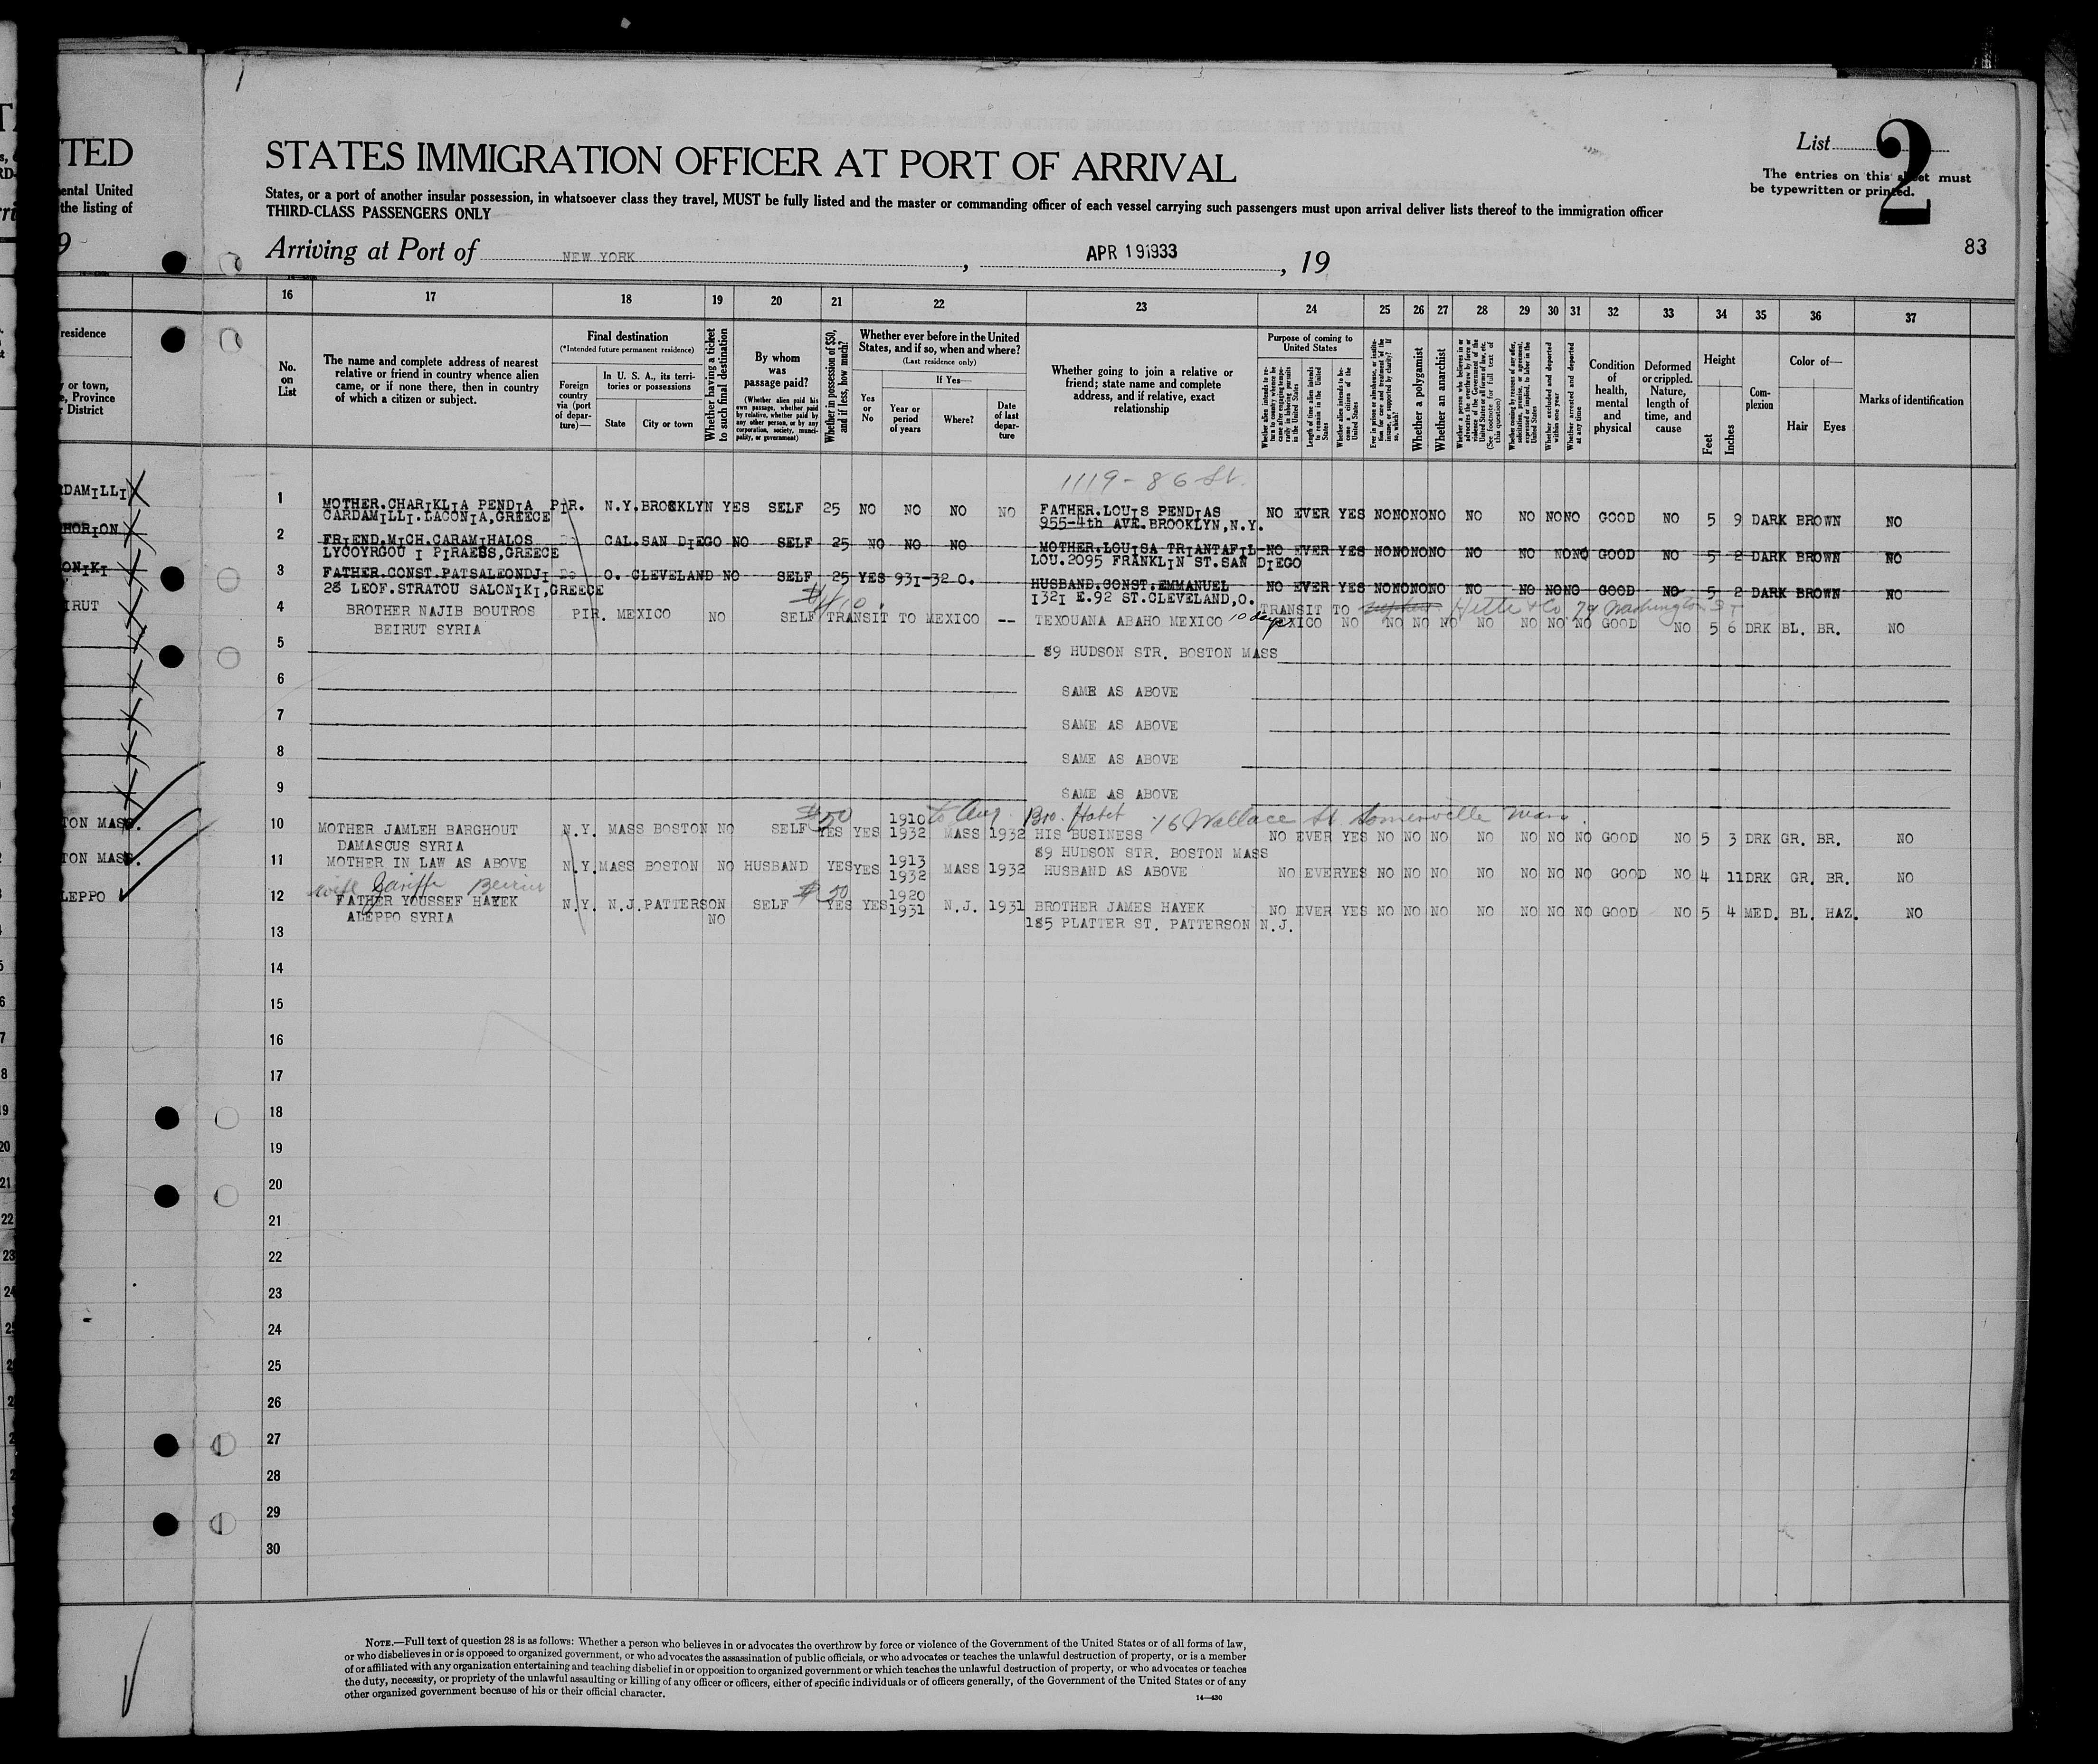 TED
STATES IMMIGRATION OFFICER AT PORT OF ARRIVAL
List
2
The entries on this sheet must
be typewritten or printed.
ental United
the listing of
States, or a port of another insular possession, in whatsoever class they travel, MUST be fully listed and the master or commanding officer of each vessel carrying such passengers must upon arrival deliver lists thereof to the immigration officer
THIRD-CLASS PASSENGERS ONLY
9
Arriving at Port of NEW YORK , APR 19 1933 , 19
83
16 17 18 19 20 21 22 23 24 25 26 27 28 29 30 31 32 33 34 35 36 37
residence
y or town,
e, Province
r District
No.
on
List
The name and complete address of nearest
relative or friend in country whence alien
came, or if none there, then in country
of which a citizen or subject.
Final destination
(*Intended future permanent residence)
Foreign
country
via (port
of depar-
ture)—
In U. S. A., its terri-
tories or possessions
State
City or town
Whether having a ticket
to such final destination
By whom
was
passage paid?
(Whether alien paid his
own passage, whether paid
by relative, whether paid by
any other person, or by any
corporation, society, munici-
pality, or government)
Whether in possession of $50,
and if less, how much?
Whether ever before in the United
States, and if so, when and where?
(Last residence only)
Yes
or
No
If Yes—
Year or
period
of years
Where?
Date
of last
depar-
ture
Whether going to join a relative or
friend; state name and complete
address, and if relative, exact
relationship
Purpose of coming to
United States
Whether alien intends to re-
turn to country whence he
came after engaging tempo-
rarily in laboring pursuits
in the United States
Length of time alien intends
to remain in the United
States
Whether alien intends to be-
come a citizen of the
United States
Ever in prison or almshouse, or institu-
tion for care and treatment of the
insane, or supported by charity? If
so, which?
Whether a polygamist
Whether an anarchist
(See footnote for full text of
this question)
Whether excluded and deported
within one year
Whether arrested and deported
at any time
Condition
of
health,
mental
and
physical
Deformed
or crippled.
Nature,
length of
time, and
cause
Height
Feet
Inches
Com-
plexion
Color of—
Hair
Eyes
Marks of identification
1119 - 86 St.
RDAMILLI
1 MOTHER.CHARIKLIA PENDIA PIR. N.Y. BROOKLYN YES SELF 25 NO NO NO NO FATHER.LOUIS PENDIAS NO EVER YES NO NO NO NO NO NO NO NO GOOD NO 5 9 DARK BROWN NO
CARDAMILLI.LACONIA,GREECE 955-4th AVE.BROOKLYN,N.Y.
HORION
2 FRIEND.MICH.CARAMIHALOS Do CAL.SAN DIEGO NO SELF 25 NO NO NO MOTHER.LOUISA TRIANTAFIL- NO EVER YES NO NO NO NO NO NO NO NO GOOD NO 5 2 DARK BROWN NO
LYCOYRGOU I PIRAEUS,GREECE LOU.2095 FRANKLIN ST.SAN DIEGO
ONIKI
3 FATHER.CONST.PATSALEONDJI Do O. CLEVELAND NO SELF 25 YES 931-32 O. HUSBAND.CONST.EMMANUEL NO EVER YES NO NO NO NO NO NO NO NO GOOD NO 5 2 DARK BROWN NO
28 LEOF.STRATOU SALONIKI,GREECE I32I E.92 ST.CLEVELAND,O.
IRUT
4 BROTHER NAJIB BOUTROS PIR. MEXICO NO SELF TRANSIT TO MEXICO -- TEXOUANA ABAHO MEXICO 10 days TRANSIT TO MEXICO NO NO NO NO NO NO NO NO GOOD NO 5 6 DRK BL. BR. NO
& Co 79 Washington St
BEIRUT SYRIA
5 89 HUDSON STR. BOSTON MASS
6 SAME AS ABOVE
7 SAME AS ABOVE
8 SAME AS ABOVE
9 SAME AS ABOVE
$50 to Aug. Bro. Habet 76 Wallace St. Somerville Mass.
TON MASS.
10 MOTHER JAMLEH BARGHOUT N.Y. MASS BOSTON NO SELF YES YES 1910 1932 MASS 1932 HIS BUSINESS NO EVER YES NO NO NO NO NO NO NO GOOD NO 5 3 DRK GR. BR. NO
DAMASCUS SYRIA 89 HUDSON STR. BOSTON MASS
TON MASS.
11 MOTHER IN LAW AS ABOVE N.Y. MASS BOSTON NO HUSBAND YES YES 1913 1932 MASS 1932 HUSBAND AS ABOVE NO EVER YES NO NO NO NO NO NO NO GOOD NO 4 11 DRK GR. BR. NO
wife Zariffe Beirut $50
LEPPO
12 FATHER YOUSSEF HAYEK N.Y. N.J. PATTERSON NO SELF YES YES 1920 1931 N.J. 1931 BROTHER JAMES HAYEK NO EVER YES NO NO NO NO NO NO NO GOOD NO 5 4 MED. BL. HAZ. NO
ALEPPO SYRIA 185 PLATTER ST. PATTERSON N.J.
13
14
15
16
17
18
19
20
21
22
23
24
25
26
27
28
29
30
NOTE.—Full text of question 28 is as follows: Whether a person who believes in or advocates the overthrow by force or violence of the Government of the United States or of all forms of law,
or who disbelieves in or is opposed to organized government, or who advocates the assassination of public officials, or who advocates or teaches the unlawful destruction of property, or is a member
of or affiliated with any organization entertaining and teaching disbelief in or opposition to organized government or which teaches the unlawful destruction of property, or who advocates or teaches
the duty, necessity, or propriety of the unlawful assaulting or killing of any officer or officers, either of specific individuals or of officers generally, of the Government of the United States or of any
other organized government because of his or their official character.
14—430